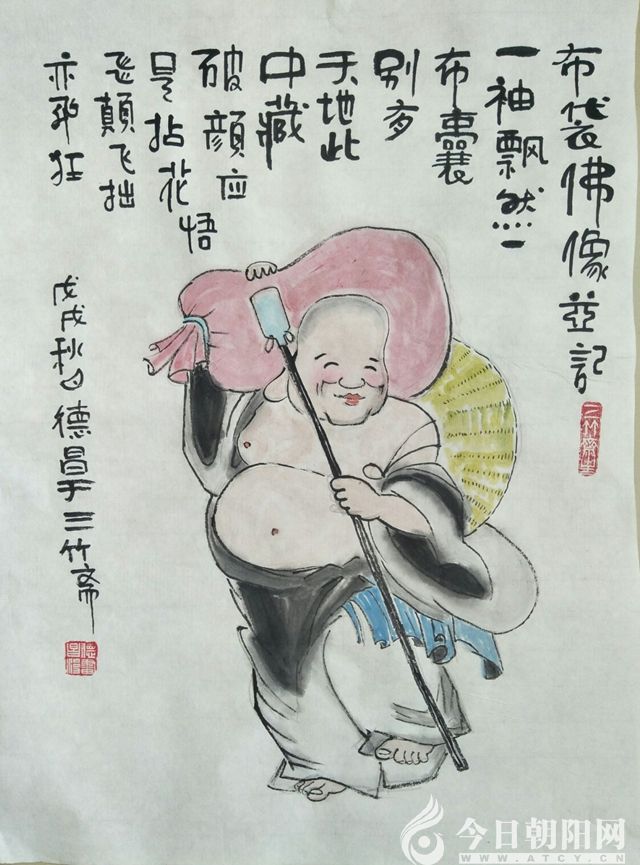 布袋佛像並記
一袖飘然一
布囊
别有
天地此
中藏
破顔应悟
是拈花
非顛飞拙
亦非狂
戊戌秋日德昌于三竹斋
三竹斋主
今日朝阳网
WWW.ATCY.CN